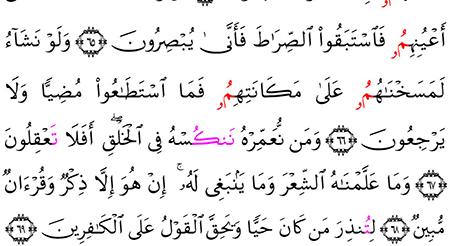 أَعْيُنِهِمُۥ فَٱسْتَبَقُوا۟ ٱلصِّرَٰطَ فَأَنَّىٰ يُبْصِرُونَ ﴿٦٥﴾ وَلَوْ نَشَآءُ
لَمَسَخْنَٰهُمُۥ عَلَىٰ مَكَانَتِهِمُۥ فَمَا ٱسْتَطَٰعُوا۟ مُضِيًّا وَلَا
يَرْجِعُونَ ﴿٦٦﴾ وَمَن نُّعَمِّرْهُ نَنكُسْهُ فِى ٱلْخَلْقِ ۖ أَفَلَا تَعْقِلُونَ
﴿٦٧﴾ وَمَا عَلَّمْنَٰهُ ٱلشِّعْرَ وَمَا يَنۢبَغِى لَهُۥٓ ۚ إِنْ هُوَ إِلَّا ذِكْرٌ وَقُرْءَانٌ
مُّبِينٌ ﴿٦٨﴾ لِّتُنذِرَ مَن كَانَ حَيًّا وَيَحِقَّ ٱلْقَوْلُ عَلَى ٱلْكَٰفِرِينَ ﴿٦٩﴾